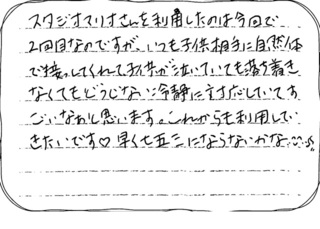 スタジオマリオさんを利用したのは今回で
2回目なのですが、いつも子供相手に自然体
で接してくれて、子供が泣いていても落ち着き
なくてもどうじないい冷静に対応していてす
ごいなあと思います。これからも利用してい
きたいです♡早く七五三にならないかな…♪